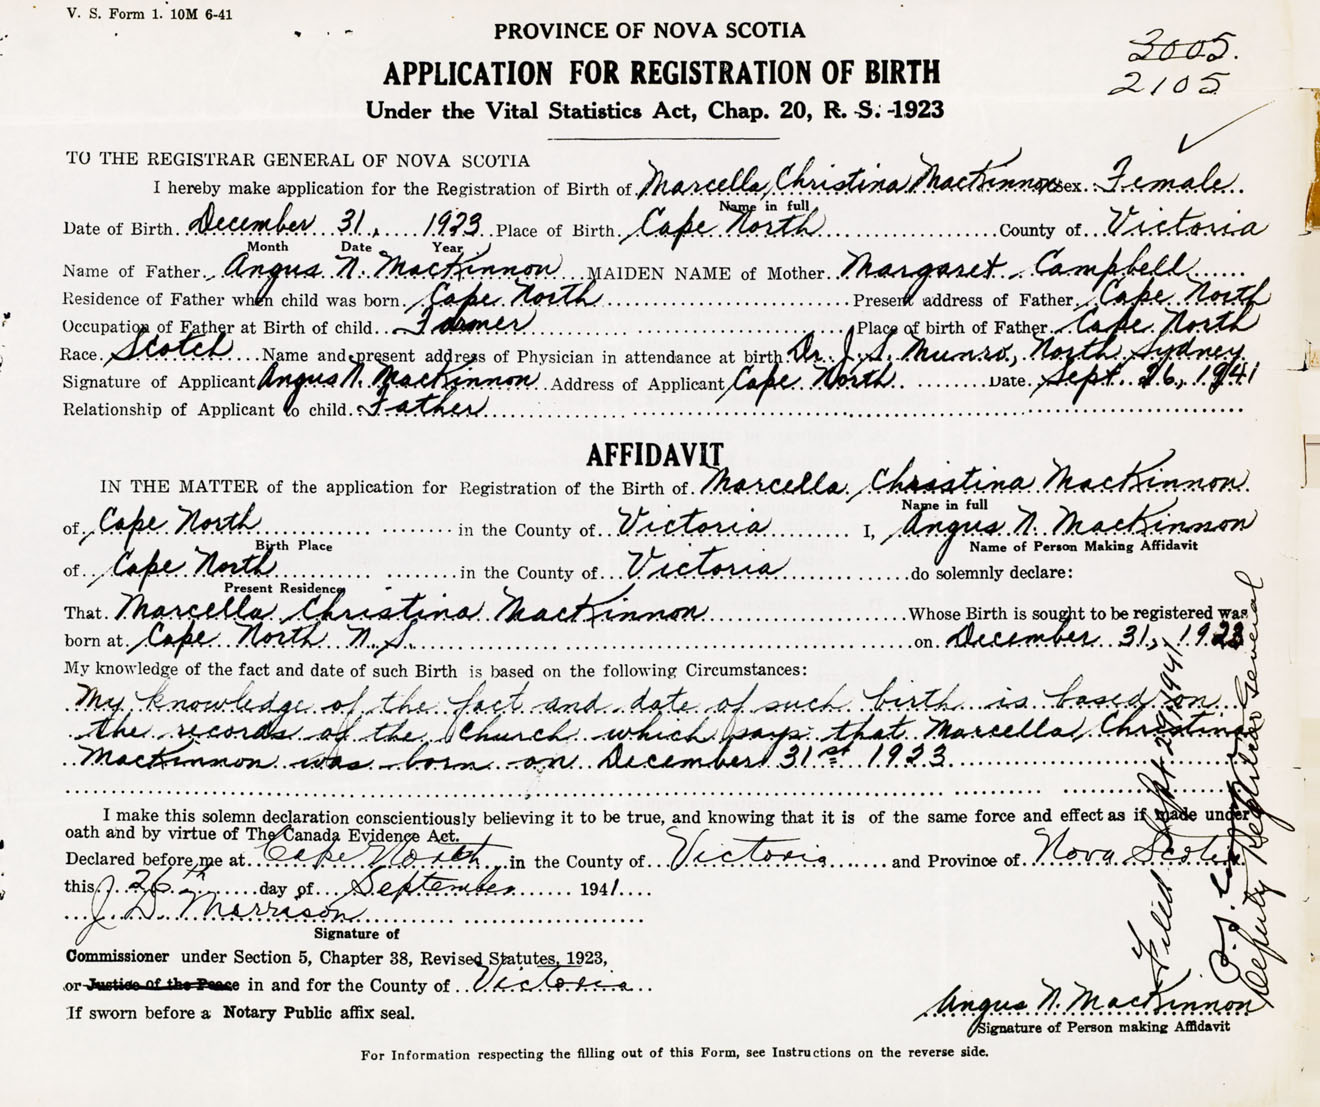 V. S. Form 1. 10M 6-41
PROVINCE OF NOVA SCOTIA
3005.
2105
APPLICATION FOR REGISTRATION OF BIRTH
Under the Vital Statistics Act, Chap. 20, R. S. 1923
TO THE REGISTRAR GENERAL OF NOVA SCOTIA
I hereby make application for the Registration of Birth of Marcella Christina MacKinnon Sex Female
Name in full
Date of Birth December 31, 1923 Place of Birth Cape North County of Victoria
Month Date Year
Name of Father Angus N. MacKinnon MAIDEN NAME of Mother Margaret Campbell
Residence of Father when child was born Cape North Present address of Father Cape North
Occupation of Father at Birth of child Farmer Place of birth of Father Cape North
Race Scotch Name and present address of Physician in attendance at birth Dr. J. S. Munro, North Sydney
Signature of Applicant Angus N. MacKinnon Address of Applicant Cape North Date Sept. 26, 1941
Relationship of Applicant to child Father
AFFIDAVIT
IN THE MATTER of the application for Registration of the Birth of Marcella Christina MacKinnon
Name in full
of Cape North in the County of Victoria I, Angus N. MacKinnon
Birth Place Name of Person Making Affidavit
of Cape North in the County of Victoria do solemnly declare:
Present Residence
That Marcella Christina MacKinnon Whose Birth is sought to be registered was
born at Cape North N.S. on December 31, 1923
My knowledge of the fact and date of such Birth is based on the following Circumstances:
My knowledge of the fact and date of such birth is based on
the records of the Church which says that Marcella Christina
MacKinnon was born on December 31st 1923
I make this solemn declaration conscientiously believing it to be true, and knowing that it is of the same force and effect as if made under
oath and by virtue of The Canada Evidence Act.
Declared before me at Cape North in the County of Victoria and Province of Nova Scotia
this 26th day of September 1941
J. D. Morrison
Signature of
Commissioner under Section 5, Chapter 38, Revised Statutes, 1923,
or Justice of the Peace in and for the County of Victoria
If sworn before a Notary Public affix seal.
Angus N. MacKinnon
Signature of Person making Affidavit
For Information respecting the filling out of this Form, see Instructions on the reverse side.
Filed Sept. 29, 1941
Deputy Registrar General